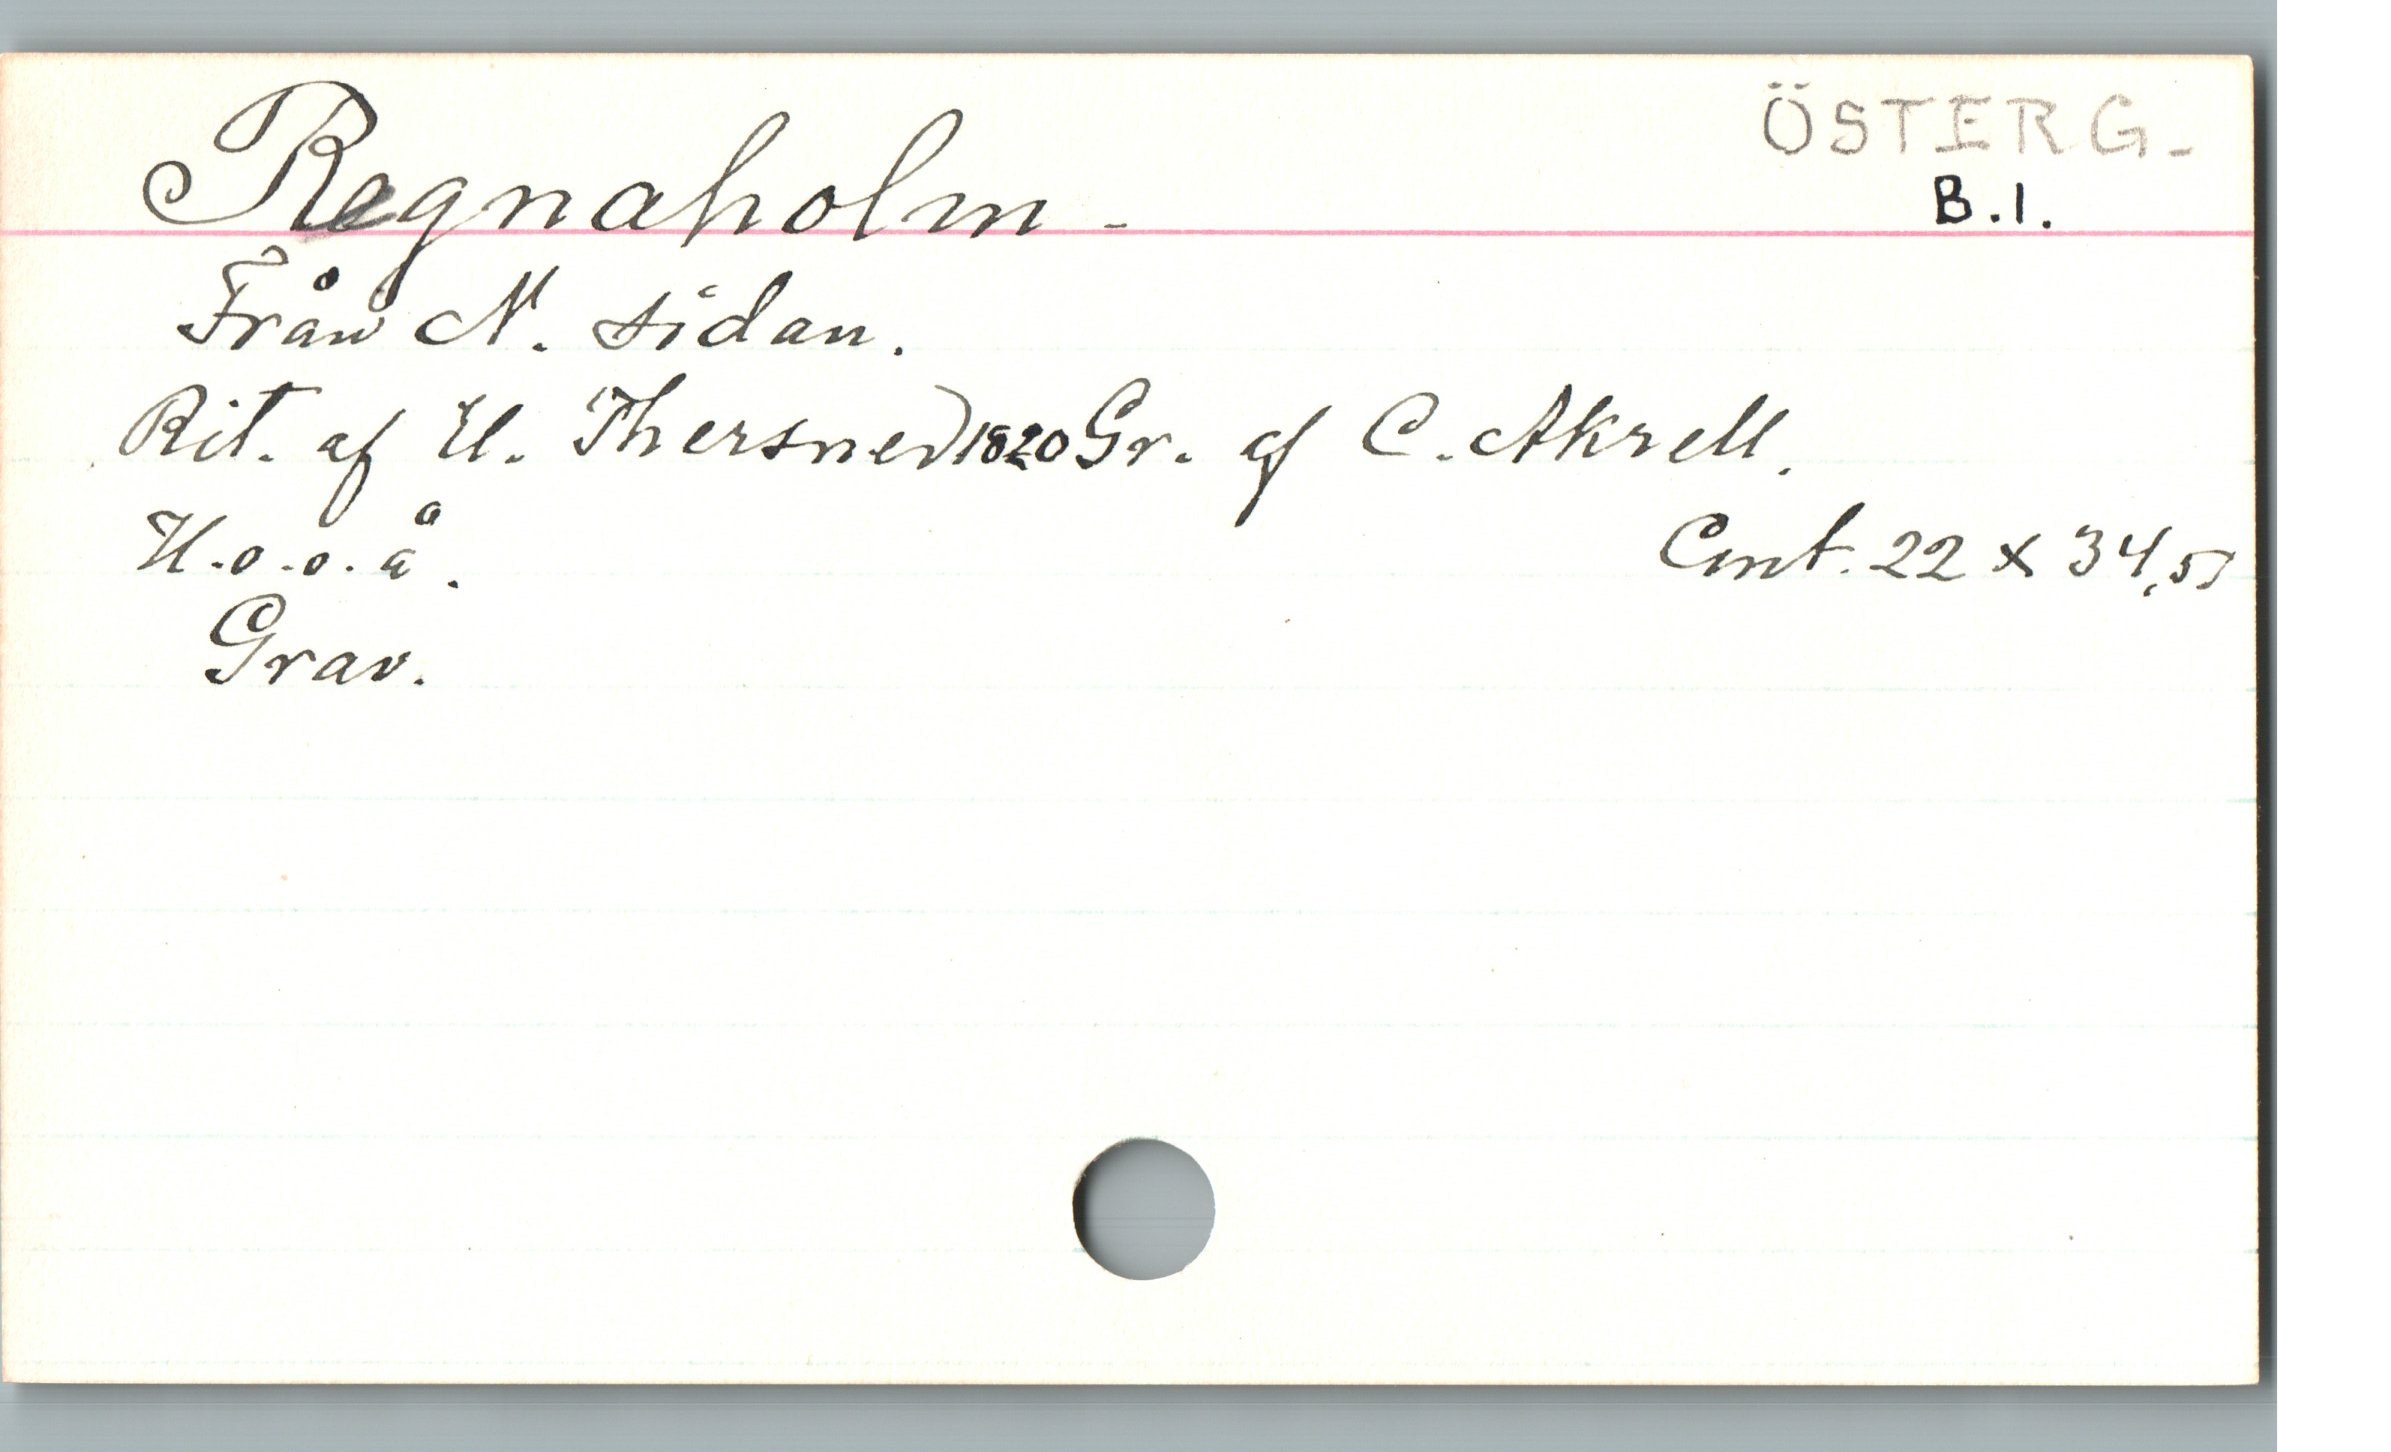 Regnaholm - ÖSTERG.
B.1.
Från N. sidan.
Rit. af U. Thersner) 1820 Gr. af C. Akrell.
H.o.o.å. Cmt. 22 x 34,5
Grav.